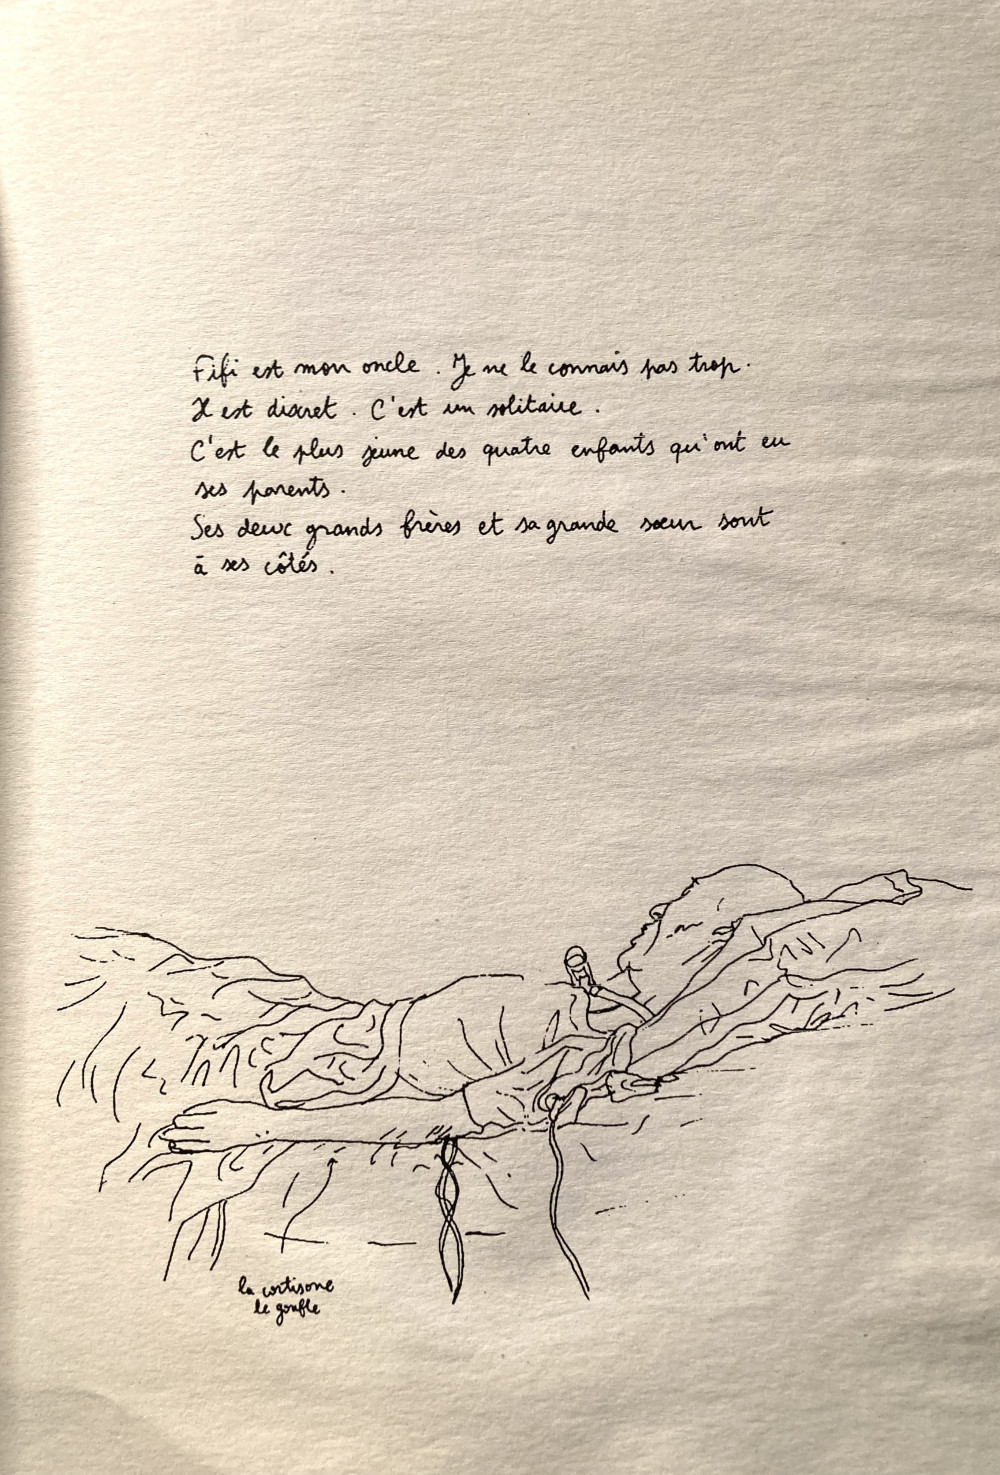 Fifi est mon oncle. Je ne le connais pas trop.
Il est discret. C'est un solitaire.
C'est le plus jeune des quatre enfants qu'ont eu
ses parents.
Ses deux grands frères et sa grande sœur sont
à ses côtés.
la cortisone
le gonfle